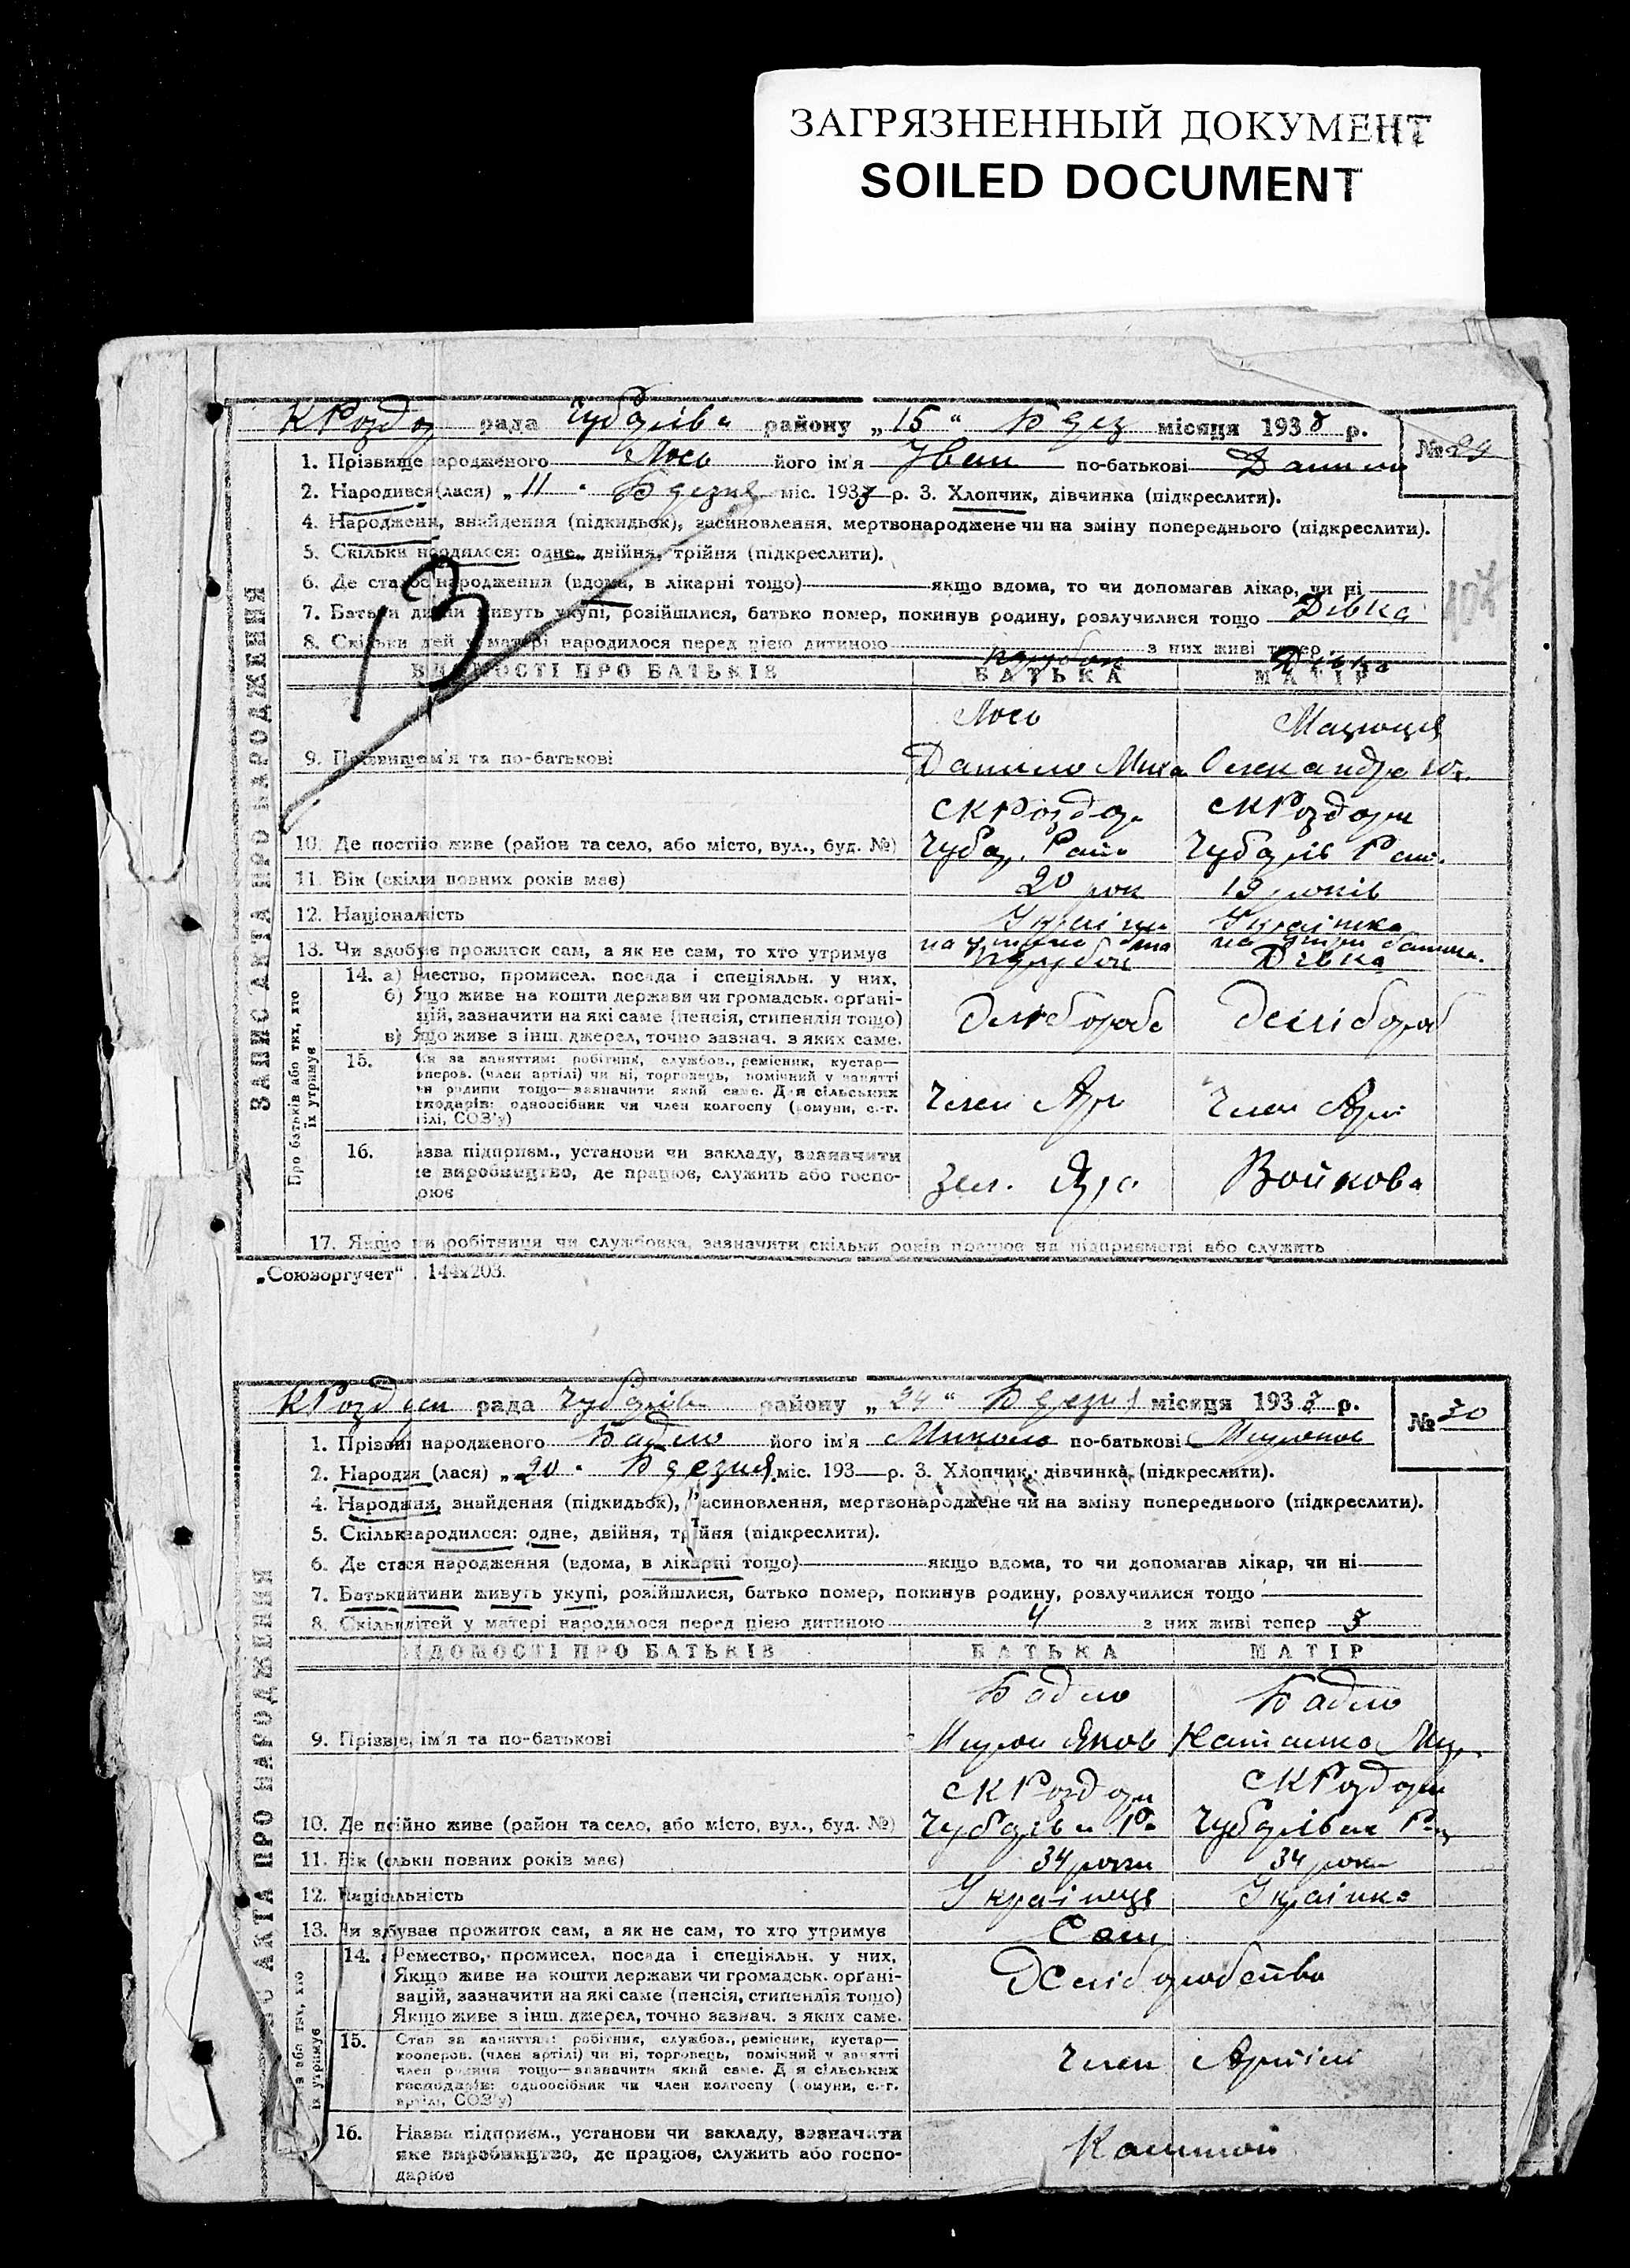 ЗАГРЯЗНЕННЫЙ ДОКУМЕНТ
SOILED DOCUMENT
К Розд рада Чубарівс району „15“ Берез місяця 1933 р.
№ 29
1. Прізвище народженого Лось його ім'я Іван по-батькові Данило
2. Народився(лася) „11 Березня міс. 1933 р. 3. Хлопчик, дівчинка (підкреслити).
4. Народжени, знайдення (підкидьок), засиновлення, мертвонароджене чи на зміну попереднього (підкреслити).
5. Скільки народилося: одне, двійня, трійня (підкреслити).
6. Де сталос народження (вдома, в лікарні тощо) якщо вдома, то чи допомагав лікар, чи ні
7. Батьки живуть укупі, розійшлися, батько помер, покинув родину, розлучилися тощо Дівка
8. Скільки матері народилося перед цією дитиною з них живі тепер
парубок Дівка
13
ПРО БАТЬКІВ БАТЬКА МАТІР
ЗАПИС АКТА ПРО НАРОДЖЕННЯ
Лось
9. та по-батькові Данило Миха Олександра
СКРоздор СКРоздори
10. Де постійно живе (район та село, або місто, вул., буд. №) Чубар. Рай. Чубарів Рай.
11. Вік (скільки повних років має) 20 рок 19 років
12. Національність Україн Українка
13. Чи здобуває прожиток сам, а як не сам, то хто утримує
парубок Дівка
Про батьків або тих, хто їх утримує
14. а) Ремество, промисел, посада і спеціяльн. у них.
б) Якщо живе на кошти держави чи громадськ. органі-
зацій, зазначити на які саме (пенсія, стипендія тощо)
в) Якщо живе з інш. джерел, точно зазнач. з яких саме.
15. за заняттям: робітник, службов., ремісник, кустар—
коперов. (член артілі) чи ні, торговець, помічний у занятті
родини тощо—зазначити який саме. Для сільських
господарів: одноосібник чи член колгоспу (комуни, с.-г.
артілі, СОЗ'у)
Член Ар Член Арті
16. назва підприєм., установи чи закладу, зазначити
яке виробництво, де працює, служить або госпо-
дарює
Войкова
17. Якщо робітниця чи службовка, зазначити скільки років працює на підприємстві або служить
„Союзоргучет“. 144х203.
КРоздори рада Чубарівс району „24“ Березня місяця 1933 р.
№ 30
1. Прізвище народженого Бадло його ім'я Микола по-батькові Миронов
2. Народився (лася) „20 Березня міс. 193 р. 3. Хлопчик, дівчинка, (підкреслити).
4. Народжння, знайдення (підкидьок), засиновлення, мертвонароджене чи на зміну попереднього (підкреслити).
5. Скільки народилося: одне, двійня, трійня (підкреслити).
6. Де стася народження (вдома, в лікарні тощо) якщо вдома, то чи допомагав лікар, чи ні
7. Батьки дитини живуть укупі, розійшлися, батько помер, покинув родину, розлучилися тощо
8. Скільки дітей у матері народилося перед цією дитиною 4 з них живі тепер 3
ВІДОМОСТІ ПРО БАТЬКІВ БАТЬКА МАТІР
АКТА ПРО НАРОДЖЕННЯ
Бадло Бадло
9. Прізвіще, ім'я та по-батькові Мирон Яков Наталка
СКРоздори СКРоздори
10. Де постійно живе (район та село, або місто, вул., буд. №) Чубарівс Ра Чубарівск Ра
11. Вік (скільки повних років має) 34 роки 34 роки
12. Національність Українець Українка
13. Чи здбуває прожиток сам, а як не сам, то хто утримує Сам
14. Ремество, промисел, посада і спеціяльн. у них.
Якщо живе на кошти держави чи громадськ. органі-
зацій, зазначити на які саме (пенсія, стипендія тощо)
Якщо живе з інш. джерел, точно зазнач. з яких саме.
15. Стан за заняттям: робітник, службов., ремісник, кустар—
кооперов. (член артілі) чи ні, торговець, помічний у занятті
член родини тощо—зазначити який саме. Для сільських
господарів: одноосібник чи член колгоспу (комуни, с.-г.
артілі, СОЗ'у)
Член Артілі
16. Назва підприєм., установи чи закладу, зазначити
яке виробництво, де працює, служить або госпо-
дарює